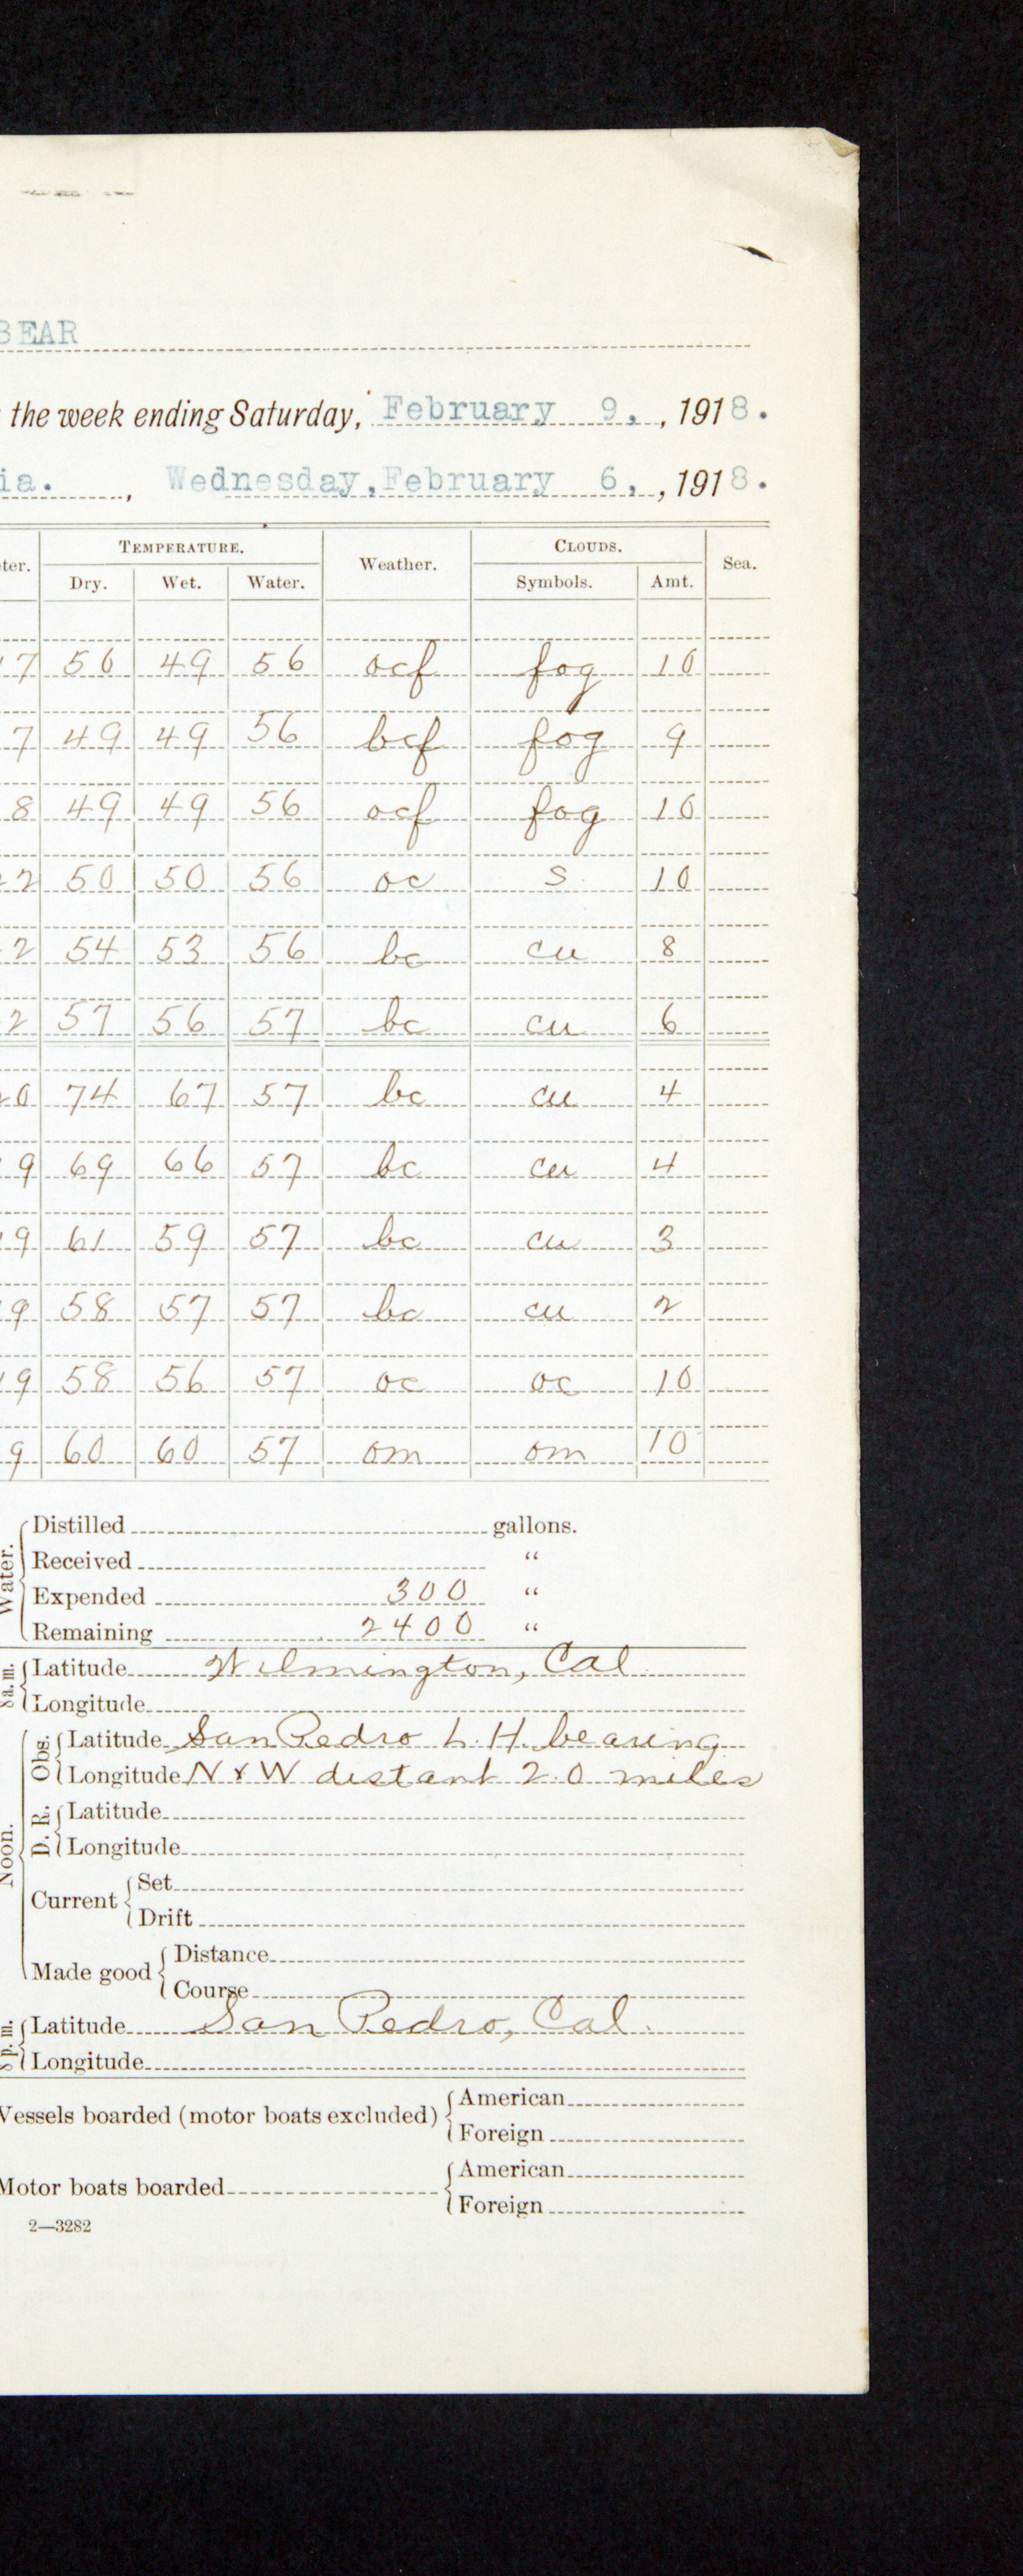 BEAR
the week ending Saturday, February 9, , 1918.
ia. , Wednesday, February 6, , 1918.
ter. TEMPERATURE. Weather. CLOUDS. Sea.
Dry. Wet. Water. Symbols. Amt.
17 50 49 56 ocf fog 10
7 49 49 56 bcf fog 9
8 49 49 56 ocf fog 10
22 50 50 56 oc s 10
2 54 53 56 bc cu 8
2 57 56 57 bc cu 6
20 74 67 57 bc cu 4
9 69 66 57 bc cu 4
19 61 59 57 bc cu 3
19 58 57 57 bc cu 2
19 58 56 57 oc oc 10
9 60 60 57 om om 10
Water.
Distilled gallons.
Received "
Expended 300 "
Remaining 2400 "
8 a. m. Latitude Wilmington, Cal.
Longitude
Noon.
Obs. Latitude San Pedro L. H. bearing
Longitude N x W distant 2.0 miles
D. R. Latitude
Longitude
Current Set
Drift
Made good Distance
Course
8 p. m. Latitude San Pedro, Cal.
Longitude
Vessels boarded (motor boats excluded) American
Foreign
Motor boats boarded American
Foreign
2—3282